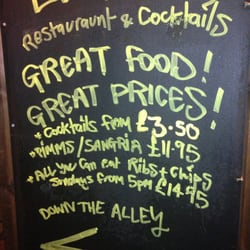 Restauraunt & Cocktails
GREAT FOOD!
GREAT PRICES!
* Cocktails from £3.50
* PIMMS/SANGRIA £11.95
* All you Can eat Ribs + Chips
Sundays from 5pm £14.95
DOWN THE ALLEY